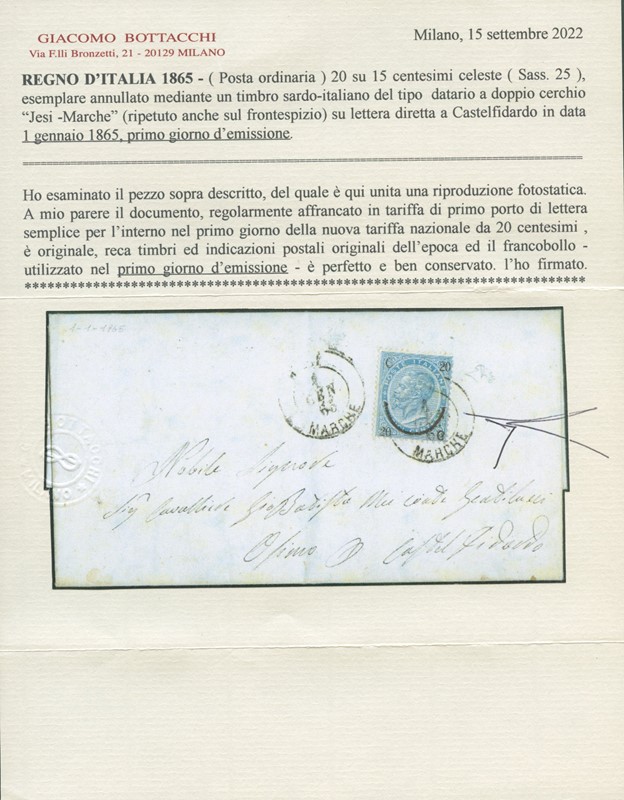 GIACOMO BOTTACCHI
Via F.lli Bronzetti, 21 - 20129 MILANO
Milano, 15 settembre 2022
REGNO D'ITALIA 1865 - ( Posta ordinaria ) 20 su 15 centesimi celeste ( Sass. 25 ),
esemplare annullato mediante un timbro sardo-italiano del tipo datario a doppio cerchio
“Jesi -Marche” (ripetuto anche sul frontespizio) su lettera diretta a Castelfidardo in data
1 gennaio 1865, primo giorno d'emissione.
Ho esaminato il pezzo sopra descritto, del quale è qui unita una riproduzione fotostatica.
A mio parere il documento, regolarmente affrancato in tariffa di primo porto di lettera
semplice per l'interno nel primo giorno della nuova tariffa nazionale da 20 centesimi ,
è originale, reca timbri ed indicazioni postali originali dell'epoca ed il francobollo -
utilizzato nel primo giorno d'emissione - è perfetto e ben conservato. l'ho firmato.
1-1-1865
C 20
POSTE ITALIANE
20 C
GEN
65
MARCHE
MARCHE
Nobile Signore
Cavaliere Gio Battista Conte
Osimo Castel Fidardo